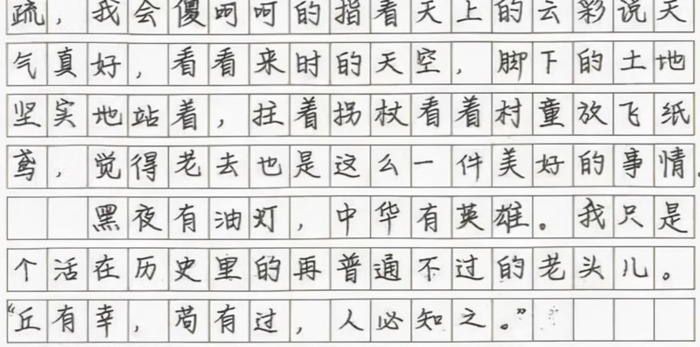 疏，我会傻呵呵的指着天上的云彩说天
气真好，看看来时的天空，脚下的土地
坚实地站着，拄着拐杖看着村童放飞纸
鸢，觉得老去也是这么一件美好的事情，
黑夜有油灯，中华有英雄。我只是
个活在历史里的再普通不过的老头儿。
“丘有幸，苟有过，人必知之。”